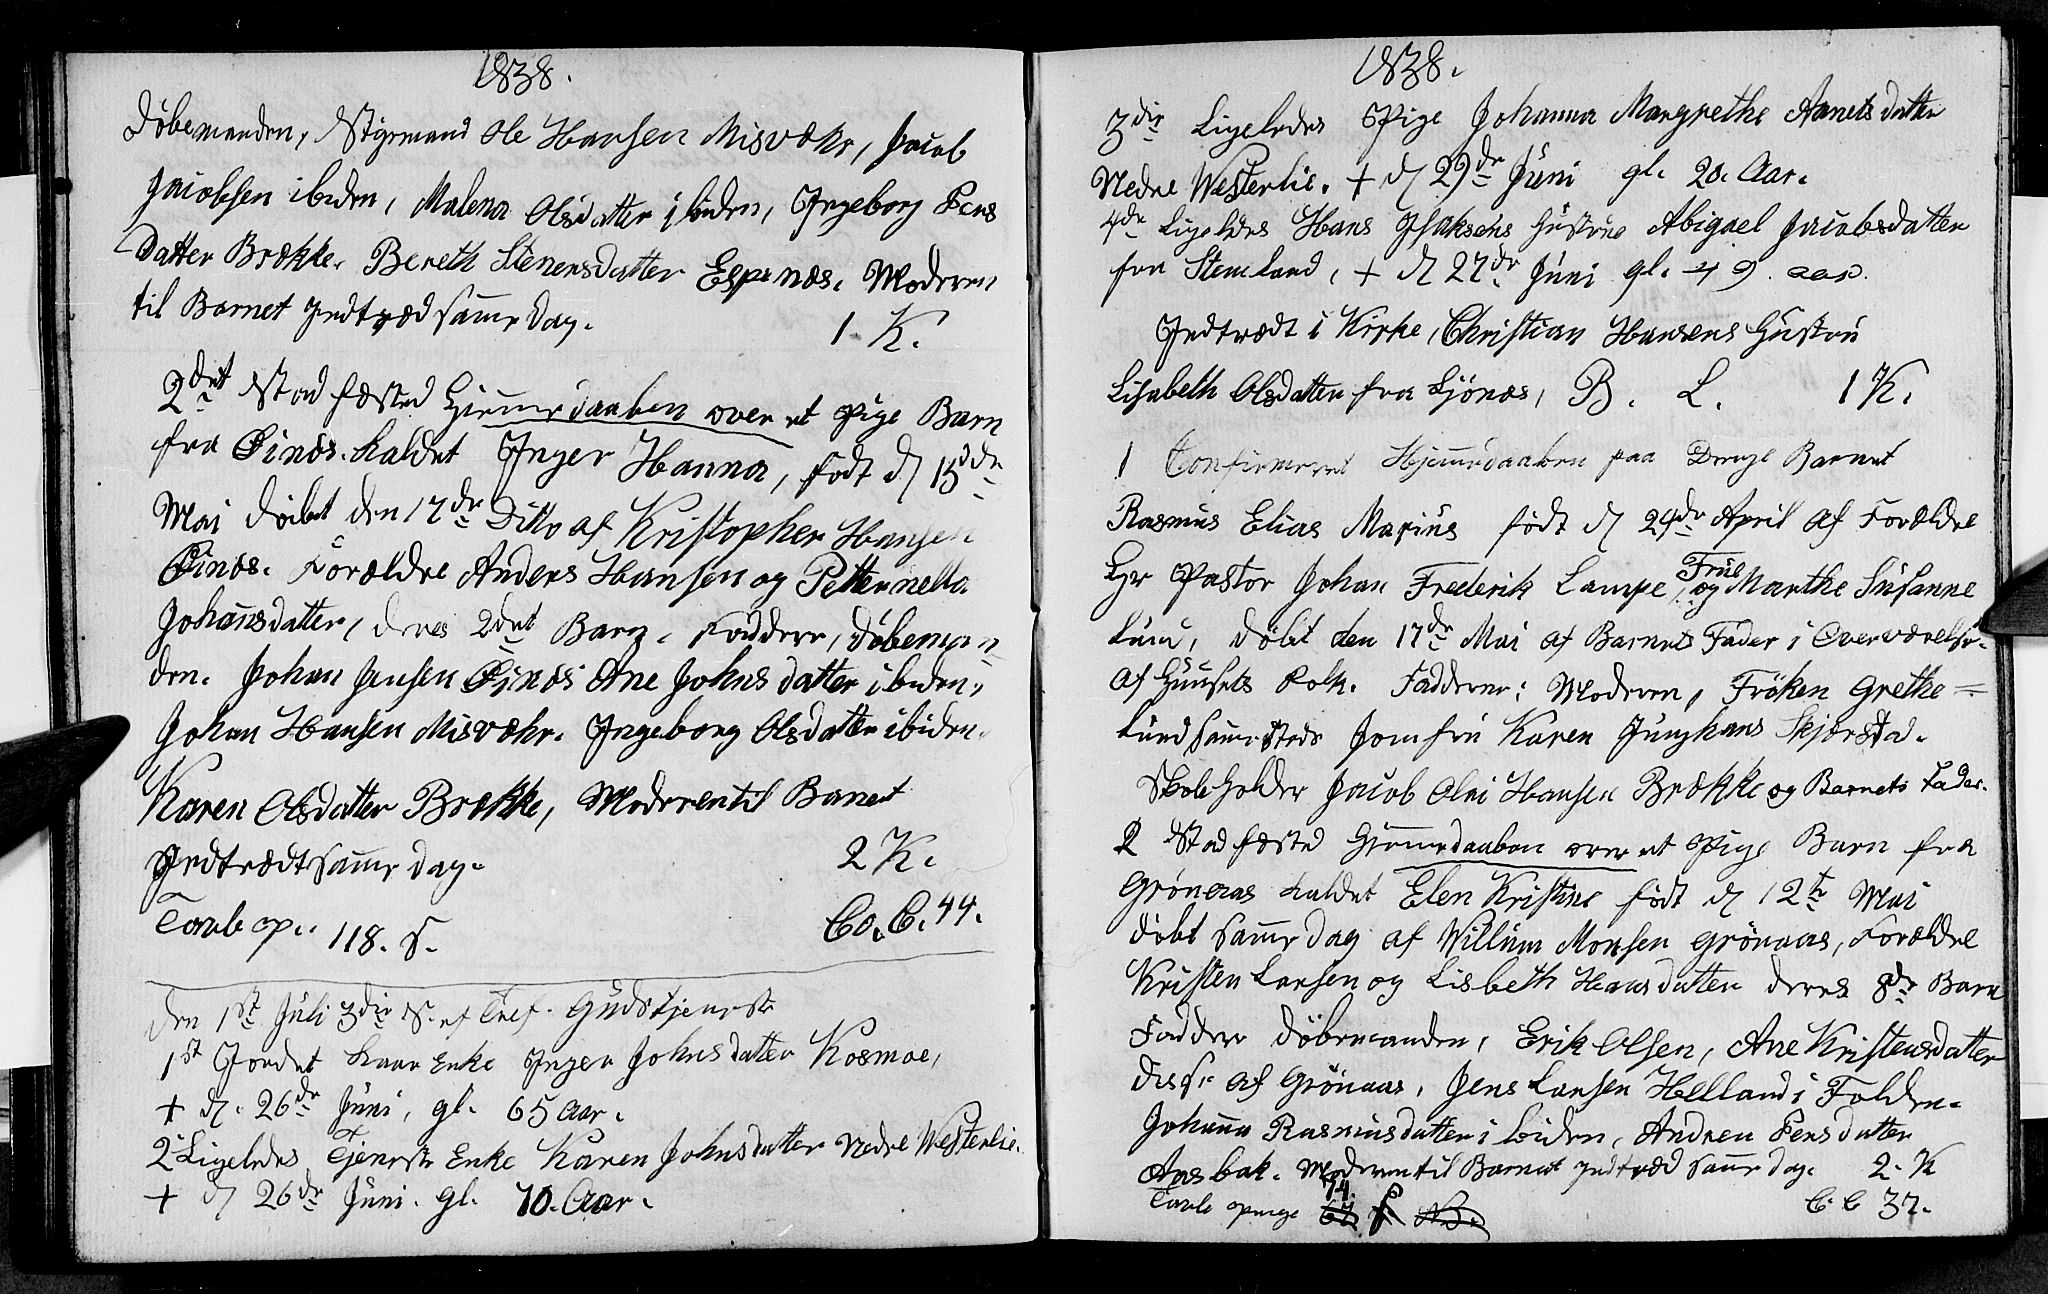 1838.
Döbemanden, Stigemand Ole Hansen Misvæhr, Jacob
Jacobsen ibiden, Malena Olsdatter ibiden, Ingeborg Pens
datter Brække. Bereth Stenersdatter Espenæs. Moderen
til Barnet Indtræd samme dag.
1. K.
2det Stadfæsted Hiemmedaaben over et Pige Barn
fra Øinæs. kaldet Inger Hanna, födt d 15de
Mai döbt den 17de Ditto af Kristopher Hansen
Øinæs. Forældre Anders Hansen og Petternella
Johansdatter, deres 2det Barn. Faddere, Döbeman
den. Johan Jensen Øinæs Ane Johnsdatter ibiden,
Johan Hansen Misvæhr. Ingeborg Olsdatter ibiden.
Karen Olsdatter Brække, Moderen til Barnet
Indtrædt samme dag.
2 K.
Tavle p. 118. s.
Co. C. 44.
den 1ste Juli 3die S. ef Tref. Gudstjeneste
1st Jordet Kaar Enke Inger Johnsdatter Kosmoe,
+ d. 26de Juni, gl. 65 Aar.
2 Ligeledes Tjeneste Enke Karen Johnsdatter Nedre Westerlie.
+ d 26de Juni. gl. 70. Aar.
1838.
3die Ligeledes Pige Johanna Margrethe Arnetsdatter
Nedre Westerlie. + d 29de Juni gl. 20. Aar.
4de Ligeledes Hans Isaksens Hustrue Abigael Jacobsdatter
fra Stemland, + d 27de Juni gl. 49. aar.
Indtrædt i Kirke, Christian Hansens Hustru
Lisabeth Olsdatter fra Ljönæs, B. L. 1 K.
1 Confirmeret Hjemmedaaben paa Drenge Barnet
Rasmus Elias Marius födt d 24de April af Forældre
Hr Pastor Johan Frederik Lampe og Frue Marthe Susanne
Lund, döbt den 17de Mai af Barnets Fader i Overværelse
af Huusets Folk. Faddere: Moderen, Fröken Grethe
Lund sammesteds Jomfru Karen Junghans Skjærstad.
Skoleholder Jacob Olai Hansen Brække og Barnets Fader.
2 Stadfæsted Hiemmedaaben over et Pige Barn fra
Grönaas kaldet Elen Kristine födt d 12te Mai
döbt samme dag af Willum Monsen Grönaas, Forældre
Kristen Larsen og Lisbeth Hansdatter deres 8de Barn
Faddere Döbemanden, Erik Olsen, Ane Kristensdatter
diss. af Grönaas, Jens Larsen Helland i Folden.
Johanna Rasmusdatter ibiden, Andrea Pensdatter
Aasbak. Moderen til Barnet indtræd samme dag. 2. K
Tavle penge 74. s.
C. C 37.